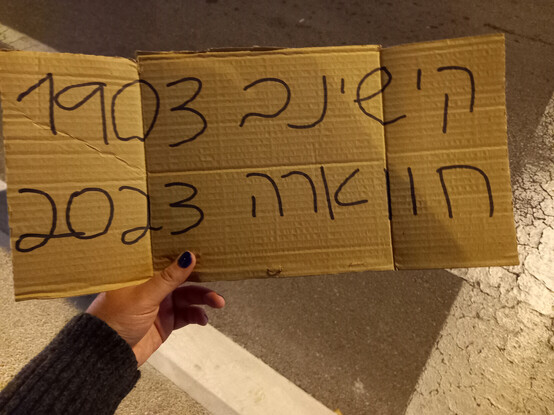 קישינב 1903
חווארה 2023